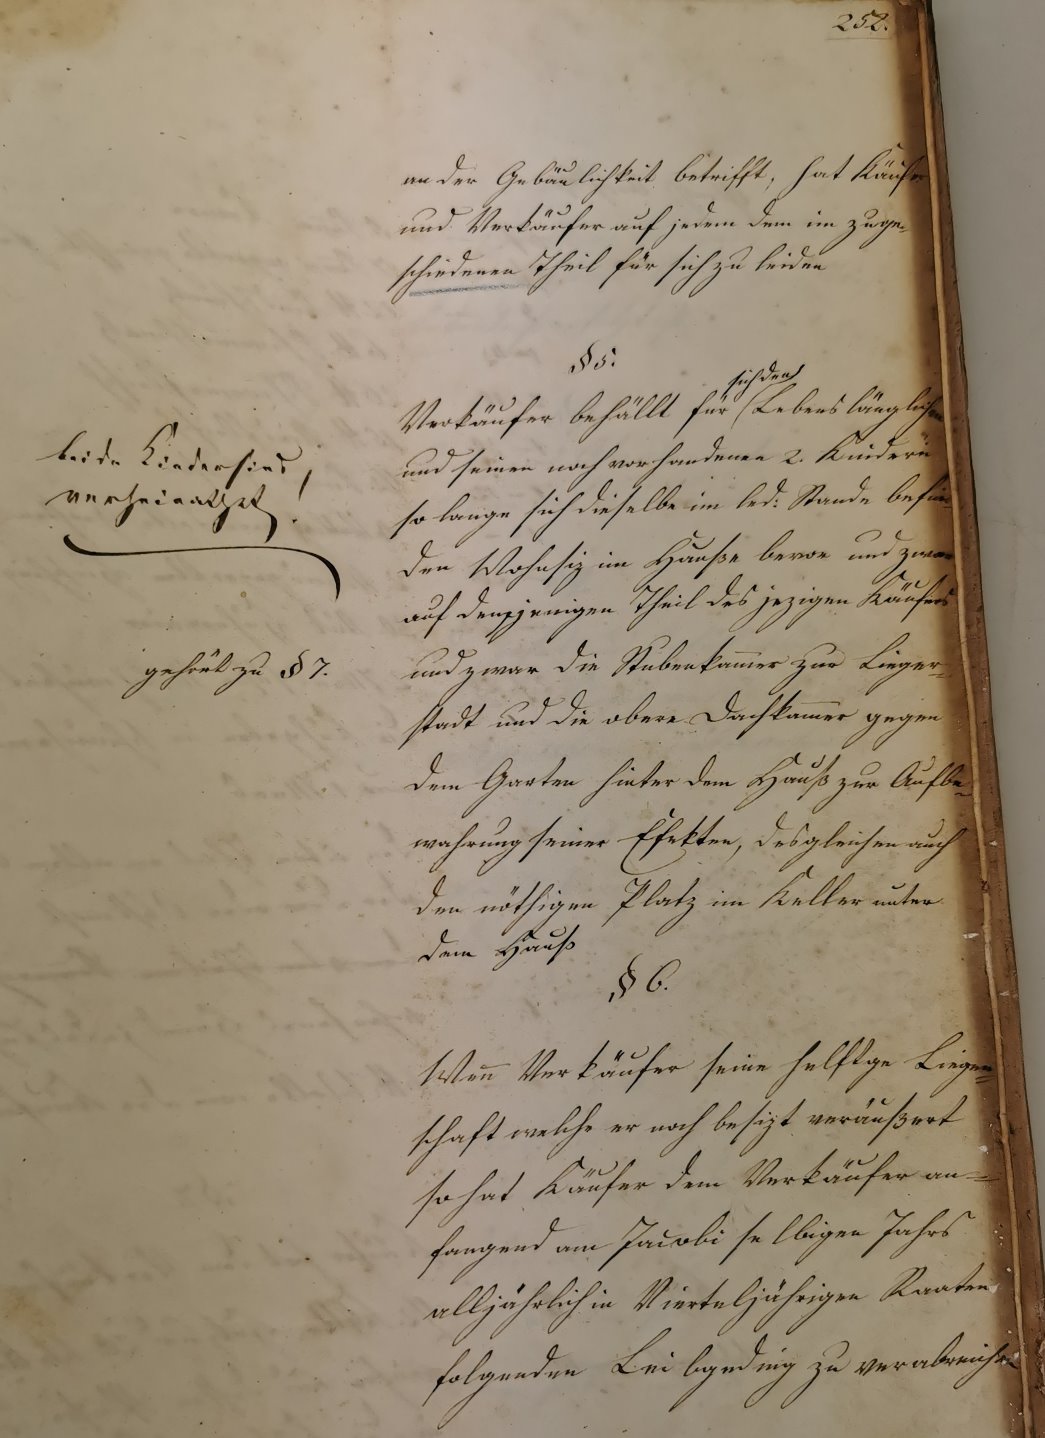 252.
an der Gebäulichkeit betrifft, hat Käufer
und Verkäufer auf jedem dem im zuge-
schiedenen Theil für sich zu leiden
§ 5.
sich den
Verkäufer behällt für (Lebenslänglichen
und seinen noch vorhandenen 2. Kindern
so lange sich dieselbe im led: Stande befin-
den Wohnsiz im Hauße bevor und zwar
auf demjenigen Theil des jezigen Käufers
und zwar die Stubenkam̄er zur Lieger-
stadt und die obere Dachkam̄er gegen
dem Garten hinter dem Hauß zur Aufbe-
wahrung seiner Efekten, desgleichen auch
den nöthigen Platz im Keller unter
dem Hauß
beide Kinder sind
verheirathet!
gehört zu § 7.
§ 6.
Wen̄ Verkäufer seine helftge Liegen-
schaft welche er noch besizt veräußert
so hat Käufer dem Verkäufer an-
fangend am Jacobi selbigen Jahrs
alljährlich in Vierteljährigen Raaten
folgenden Leibgeding zu verabreichen